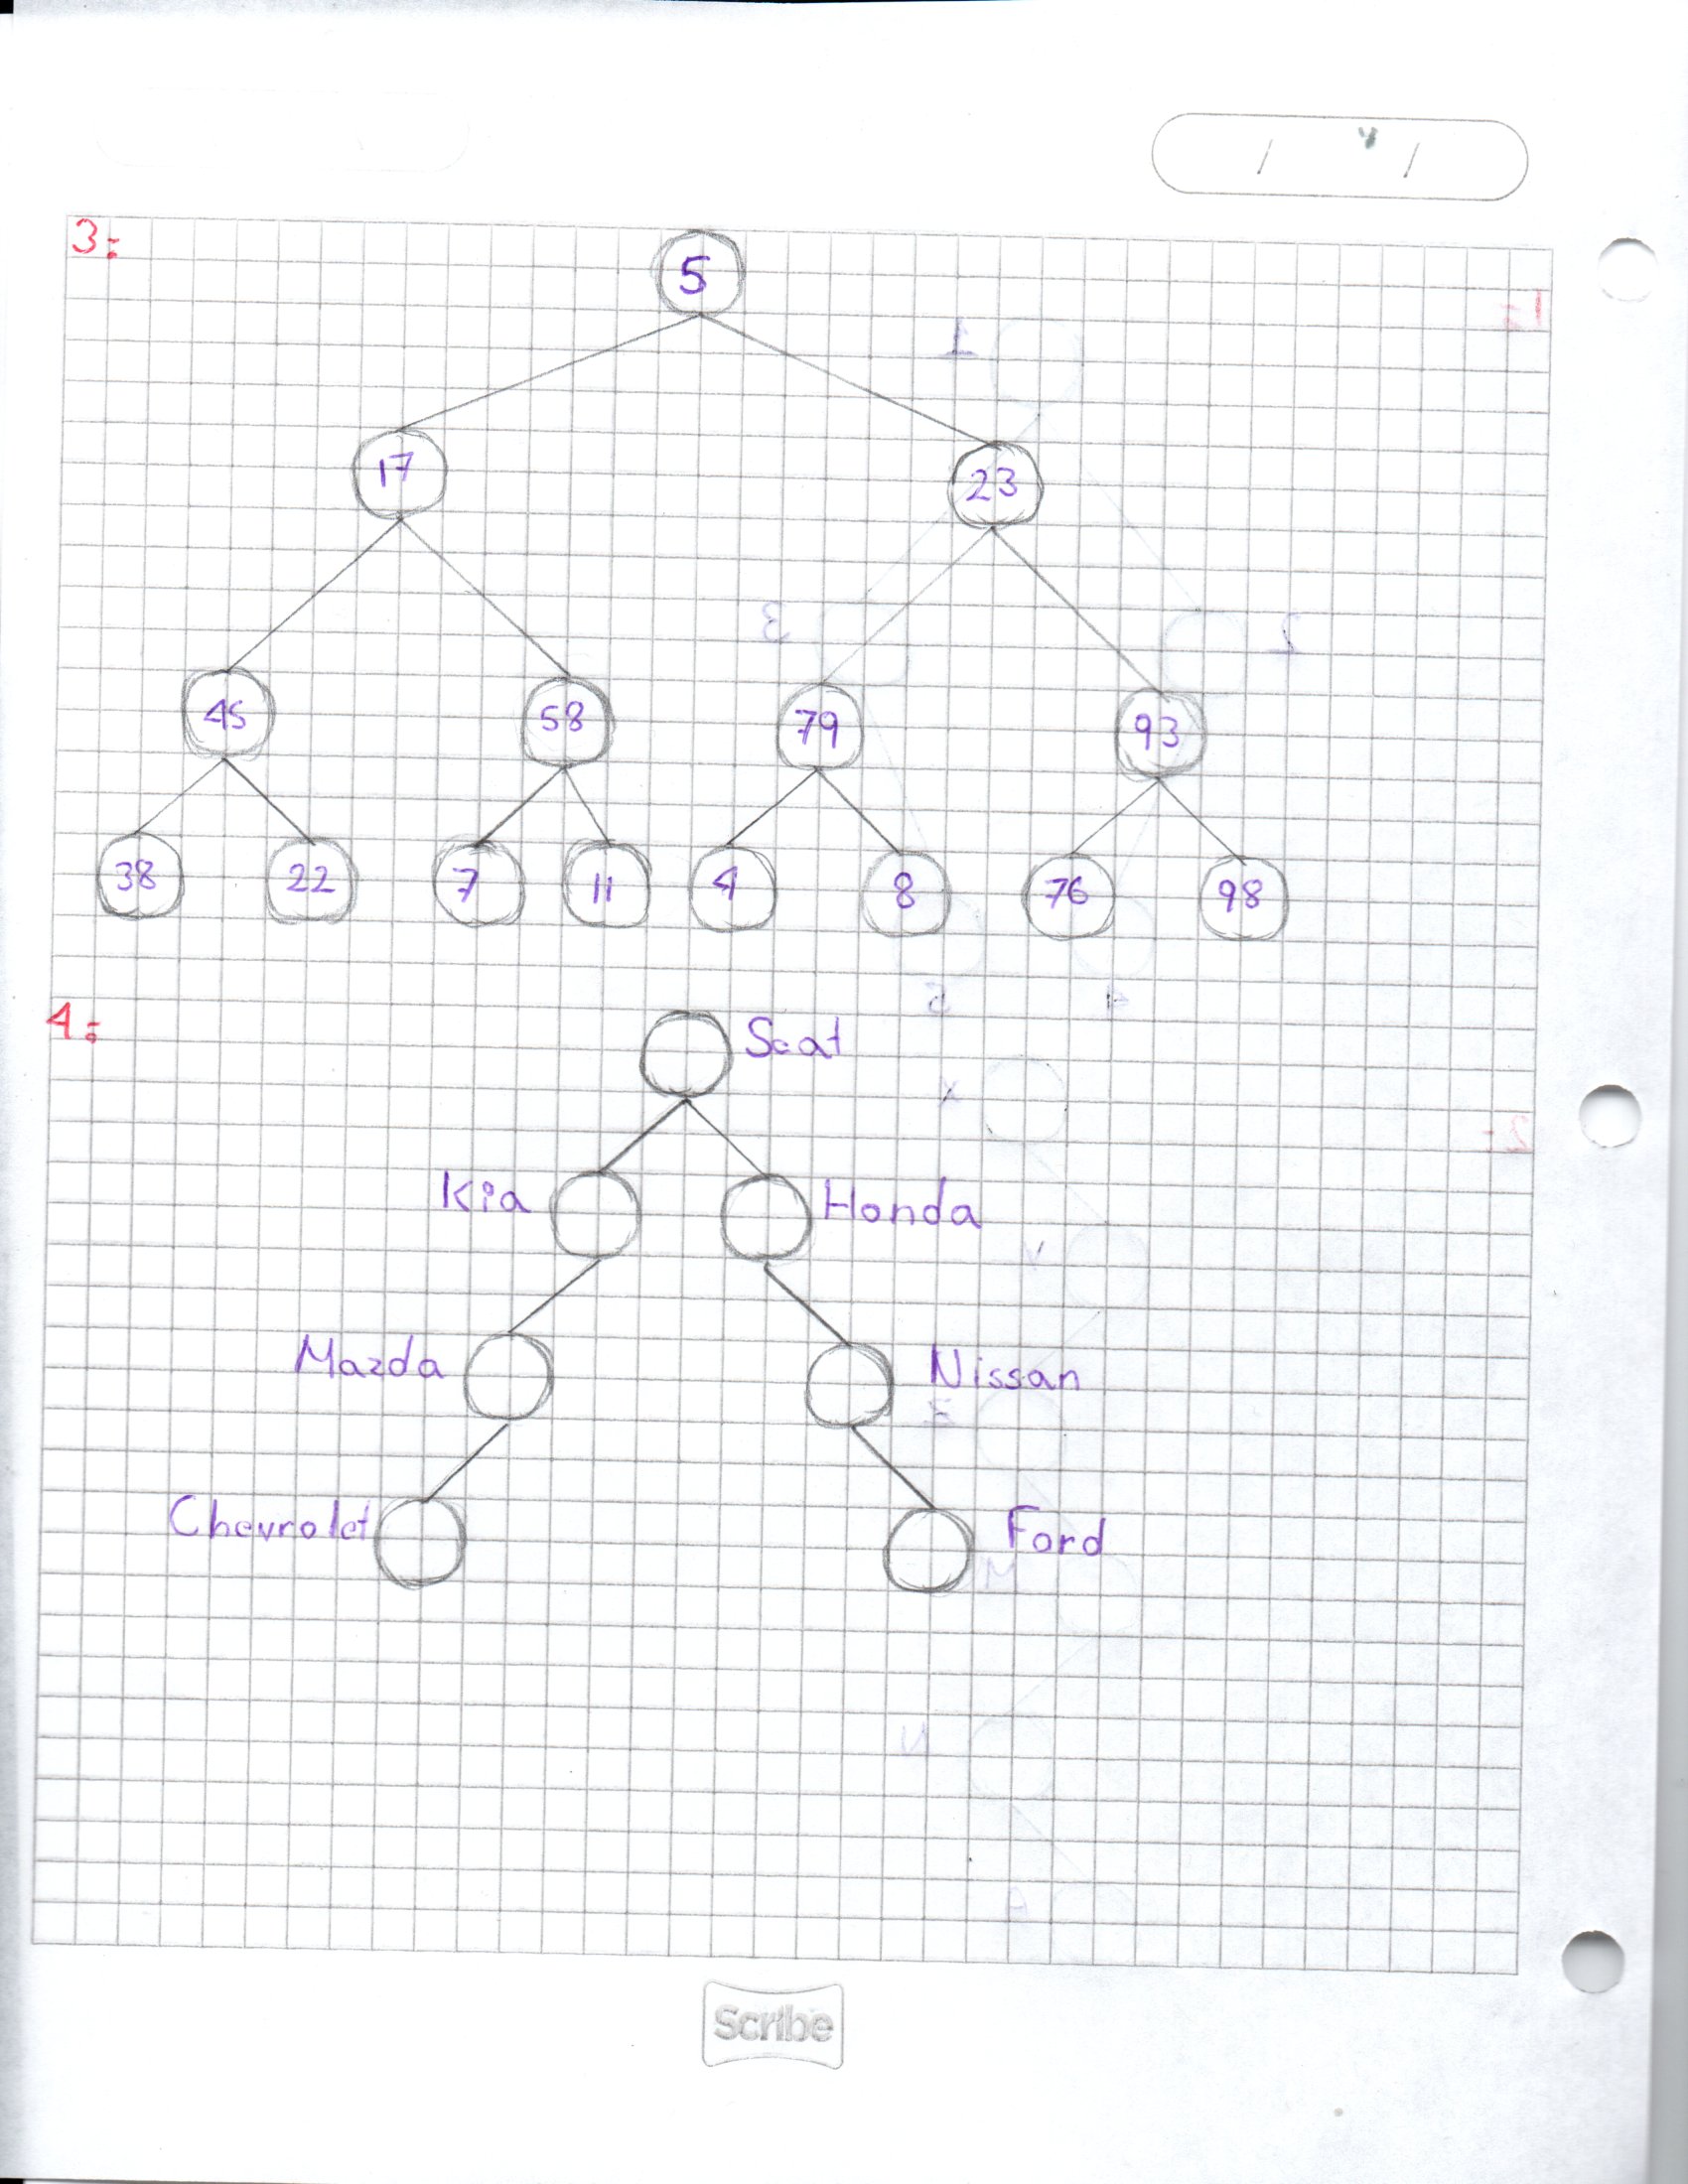 3:
5
17 23
45 58 79 93
38 22 7 11 4 8 76 98
4:
Seat
Kia Honda
Mazda Nissan
Chevrolet Ford
Scribe